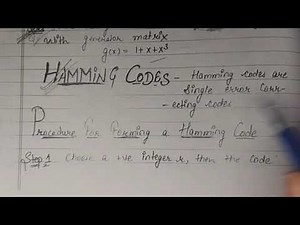 with generator matrix
g(x) = 1+x+x³
HAMMING CODES - Hamming codes are
single error Corr-
-ecting codes
Procedure For Forming a Hamming Code
Step 1 Choose a +ve integer r, then the code